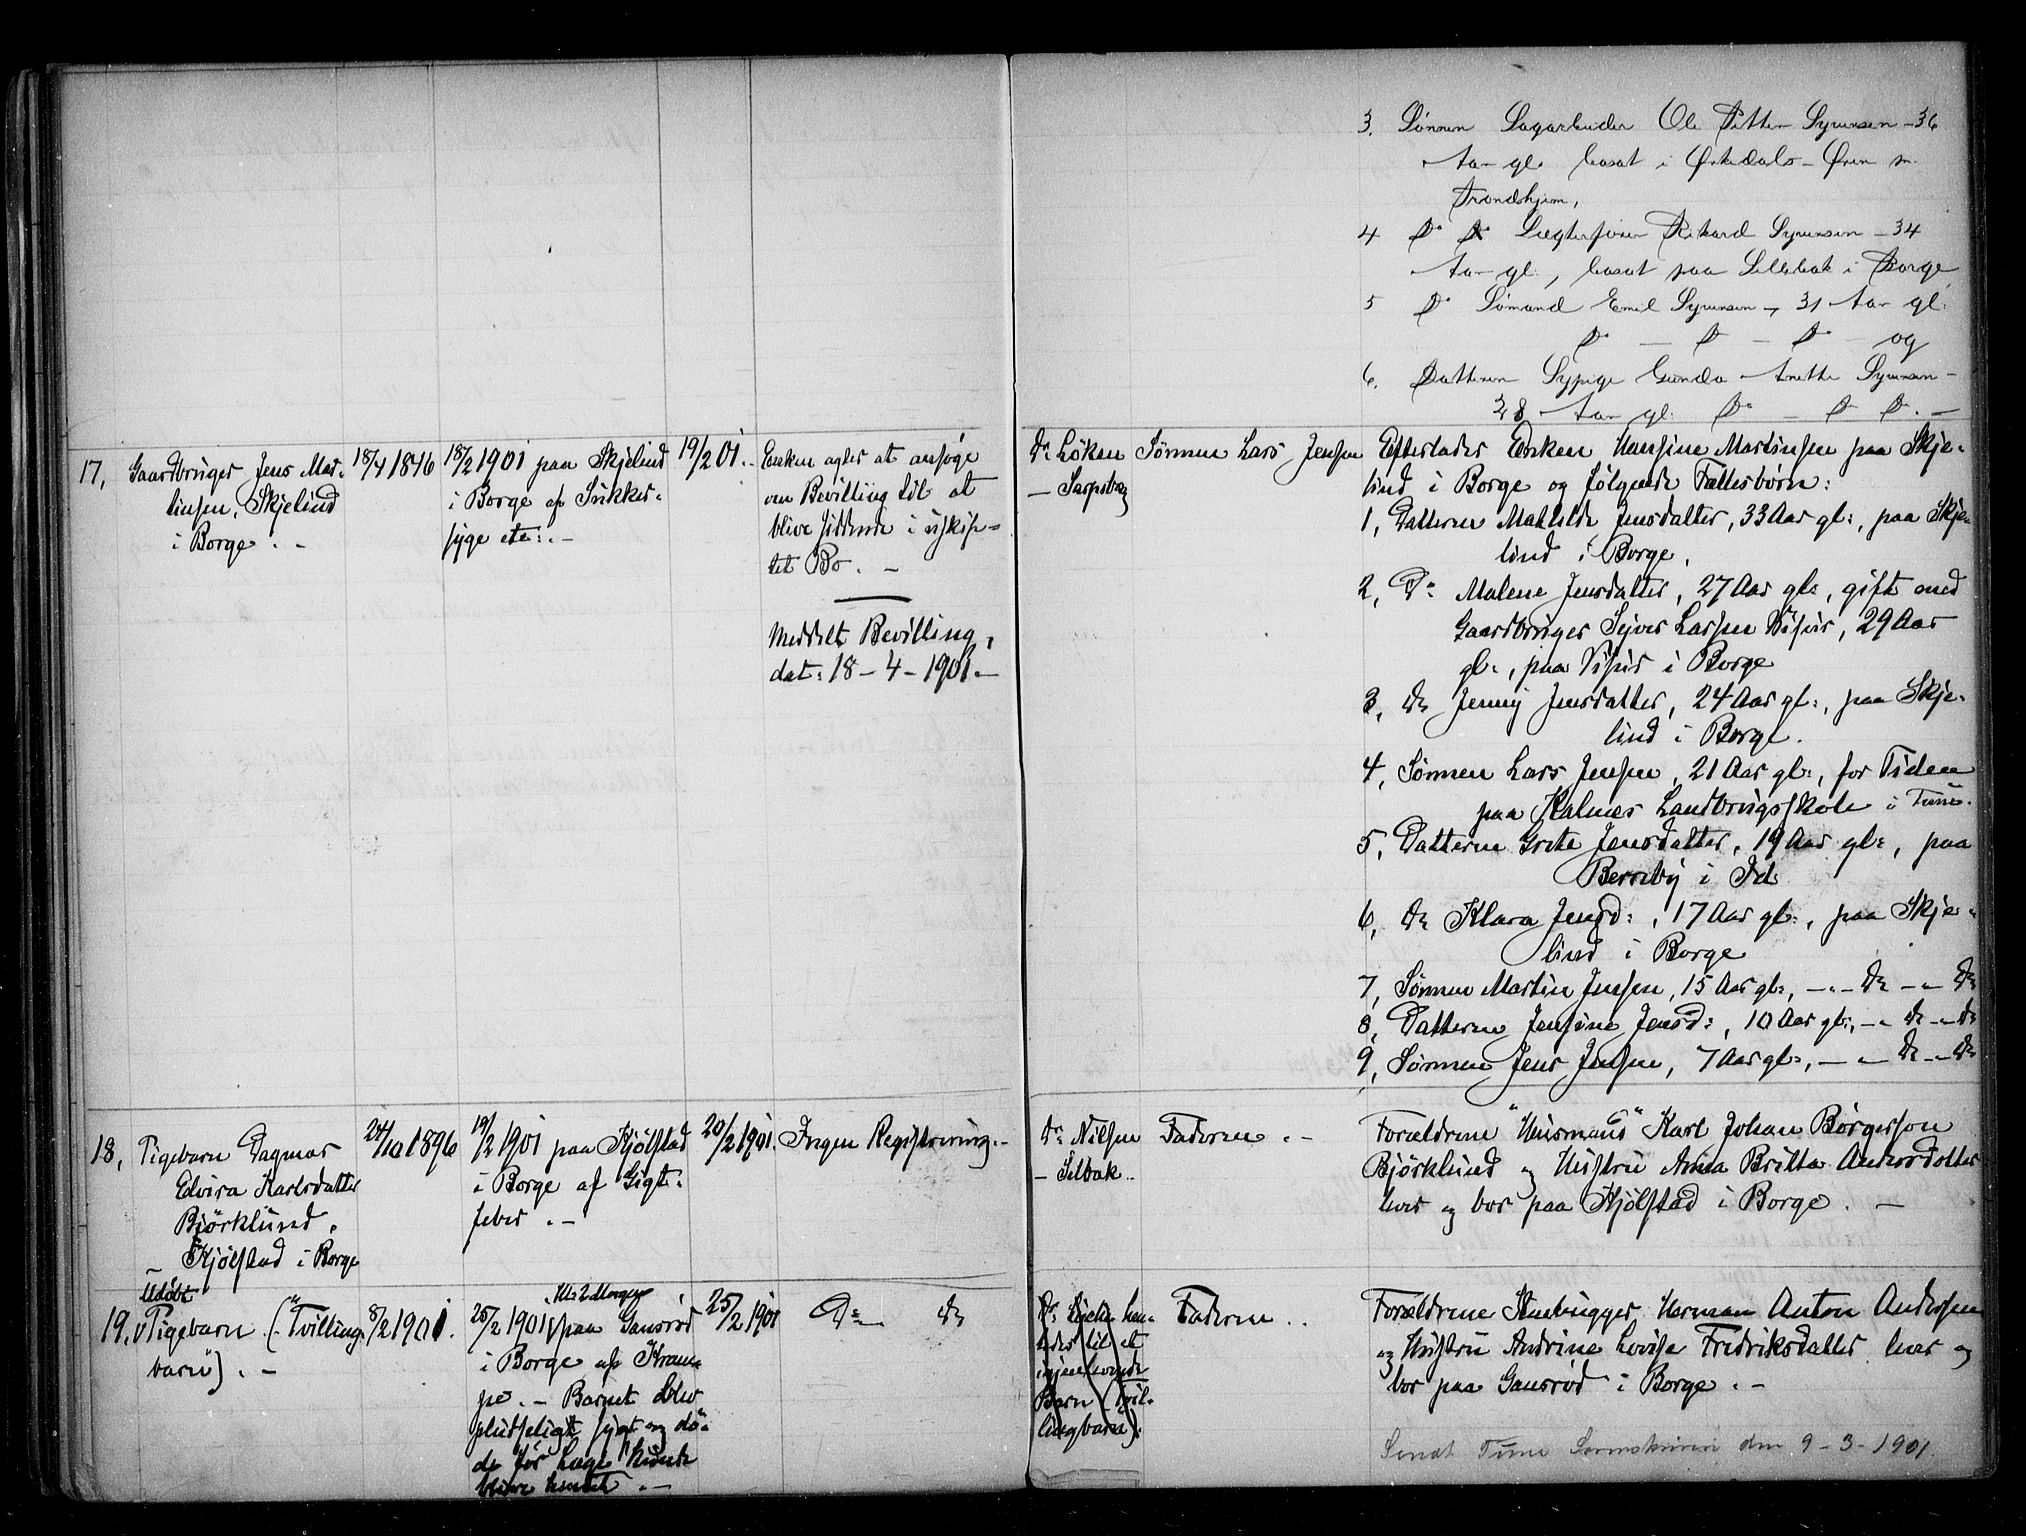 3. Sønnen Sagarbeider Ole Petter Syrensen - 36
Aar gl. bosat i Ørkedals-Øren m.
Trondhjem,
4 Do Do Lægterfører Rikard Syrensen - 34
Aar gl., bosat paa Sellebak i Borge
5 Do Sømand Emil Syrensen, 31 Aar gl.
Do — Do — Do og
6. Datteren Sypige Gunda Anette Syrensen -
28 Aar gl. Do — Do Do. —
17, Gaardbruger Jens Mar-
tinsen, Skjelind
i Borge. -
18/4 1846
18/2 1901 paa Skjelind
i Borge af Sukker-
syge etc. -
19/2 01. -
Enken agter at ansøge
om Bevilling til at
blive siddende i uskif-
tet Bo. -
Meddelt Bevilling,
dat: 18-4-1901. -
Dr Løken
- Sarpsborg
Sønnen Lars Jensen
Efterlader Enken Hansine Martinsen paa Skje-
lind i Borge og følgende Fællesbørn:
1, Datteren Mathilde Jensdatter, 33 Aar gl., paa Skje-
lind i Borge.
2, Do Malene Jensdatter, 27 Aar gl., gift med
Gaardbruger Sejver Larsen Visur, 29 Aar
gl., paa Visur i Borge
3, Do Jenny Jensdatter, 24 Aar gl., paa Skje-
lind i Borge.
4, Sønnen Lars Jensen, 21 Aar gl., for Tiden
paa Kalnæs Landbrugsskole i Tune.
5, Datteren Grete Jensdatter, 19 Aar gl., paa
Berreby i Id
6, Do Klara Jensd:, 17 Aar gl., paa Skje-
lind i Borge
7, Sønnen Martin Jensen, 15 Aar gl., - - Do - - Do
8, Datteren Jensine Jensd:, 10 Aar gl., - - Do - - Do
9, Sønnen Jens Jensen, 7 Aar gl., - - Do - - Do
18, Pigebarn Dagmar
Elvira Karlsdatter
Bjørklund,
Kjølstad i Borge
24/10 1896
19/2 1901 paa Kjølstad
i Borge af Gigt-
feber. -
20/2 1901.
Ingen Registrering. -
Dr Nilsen
- Selbak.
Faderen. -
Forældrene "Husmand" Karl Johan Börgesson
Bjørklund og Hustru Anna Britta Andersdotter
lever og bor paa Kjølstad i Borge. -
Udøbt
19, Pigebarn. ("Tvilling-
barn"). -
8/2 1901.
Kl 2 Morgen
25/2 1901 paa Gansrød
i Borge af Kram-
pe. - Barnet blev
pludseligt sygt og dø-
de før Læge kunde
blive hentet. -
25/2 1901
Do Do
Dr Løken hen-
tedes til et
igjenlevende
Barn (Tvil-
lingbarn).
Faderen. .
Forældrene Stenhugger Herman Anton Andersen
og Hustru Andrine Lovise Fredriksdatter lever og
bor paa Gansrød i Borge. -
Sendt Tune Sorenskriveri den 9-3-1901.